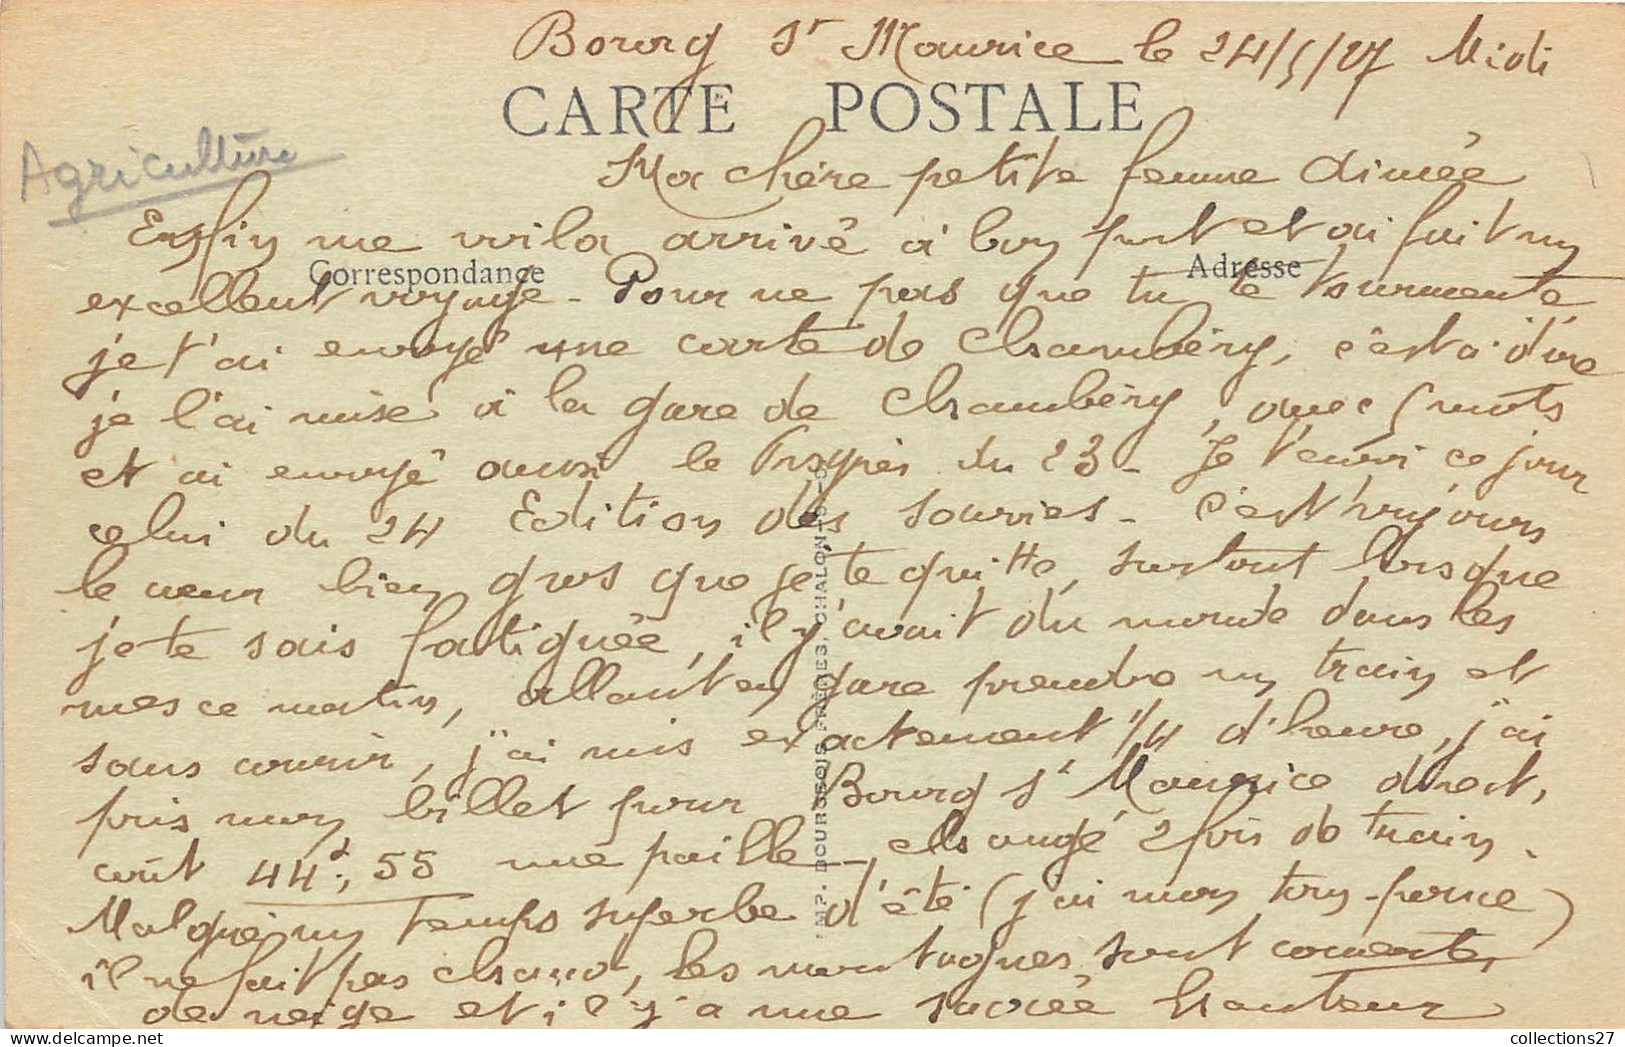 Bourg St Maurice le 24/5/27 Midi
CARTE POSTALE
Agriculture
Ma chère petite femme aimée
Enfin me voila arrivé à bon port et ai fait un
Correspondance
Adresse
excellent voyage - Pour ne pas que tu te tourmente
je t'ai envoyé une carte de Chambéry, c'est a dire
je l'ai mise à la gare de Chambéry, avec 5 mots
et ai envoyé aussi le Progrès du 23 - Je t'envoi ce jour
celui du 24 Edition des souries - C'est toujours
le cœur bien gros que je te quitté, surtout lorsque
je te sais fatiguée, il y avait du monde dans les
rues ce matin, allant en gare prendre un train et
sans courir, j'ai mis exactement 1/4 d'heure, j'ai
pris mon billet pour Bourg St Maurice direct,
coût 44f,55 une paille -, changé 2 fois de train.
Malgré un temps superbe d'été (j'ai mon )
il ne fait pas chaud, les montagnes sont couvertes
de neige et il y a une sacrée hauteur
IMP. BOURGEOIS FRÈRES, CHALON-S-S
collections27